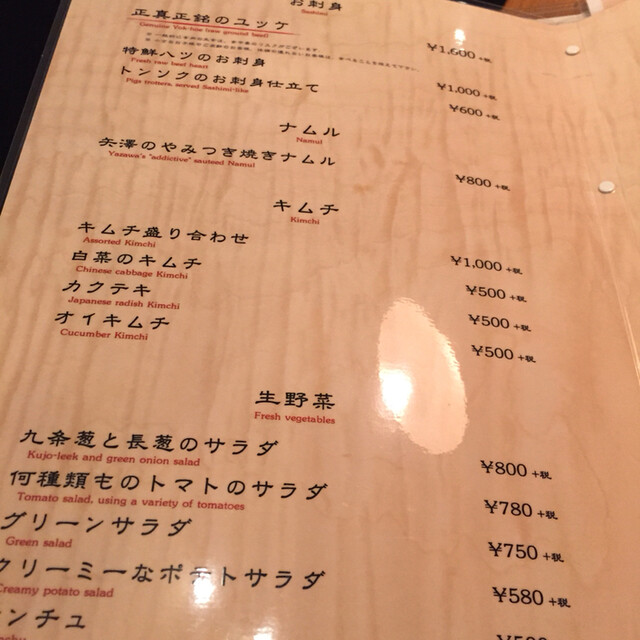 お刺身
Sashimi
正真正銘のユッケ
Genuine Yuk-hoe (raw ground beef)
¥1,600 +税
特鮮ハツのお刺身
Fresh raw beef heart
¥1,000 +税
トンソクのお刺身仕立て
Pigs trotters, served Sashimi-like
¥600 +税
ナムル
Namul
矢澤のやみつき焼きナムル
Yazawa's "addictive" sautéed Namul
¥800 +税
キムチ
Kimchi
キムチ盛り合わせ
Assorted Kimchi
¥1,000 +税
白菜のキムチ
Chinese cabbage Kimchi
¥500 +税
カクテキ
Japanese radish Kimchi
¥500 +税
オイキムチ
Cucumber Kimchi
¥500 +税
生野菜
Fresh vegetables
九条葱と長葱のサラダ
Kujo-leek and green onion salad
¥800 +税
何種類ものトマトのサラダ
Tomato salad, using a variety of tomatoes
¥780 +税
グリーンサラダ
Green salad
¥750 +税
クリーミーなポテトサラダ
Creamy potato salad
¥580 +税
ンチュ